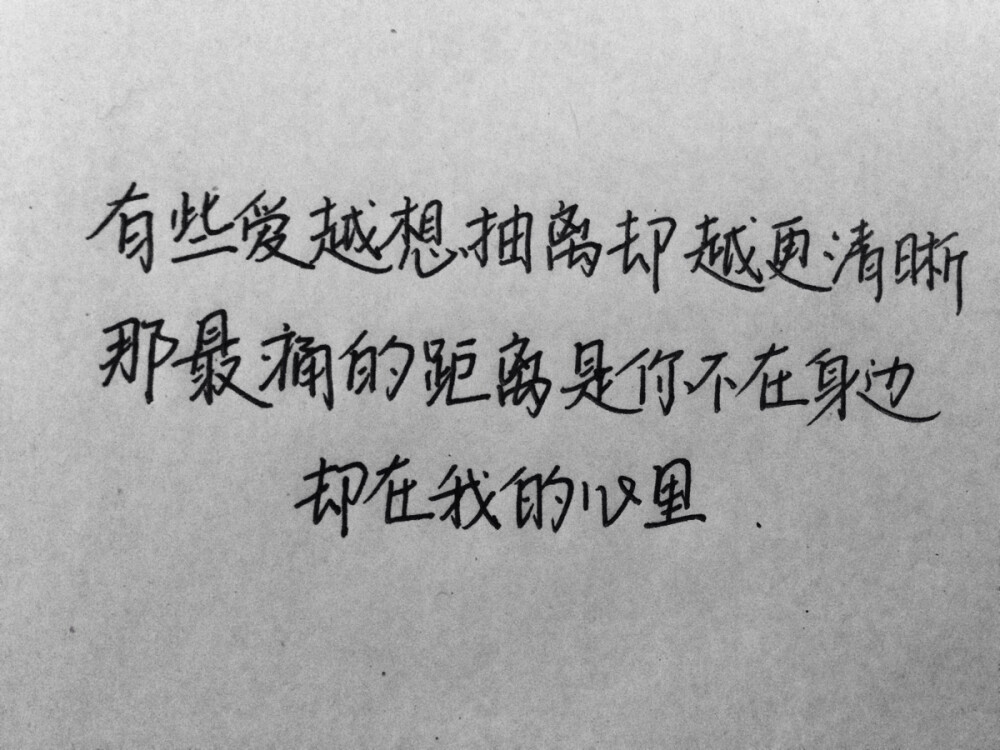 有些爱越想抽离却越更清晰
那最痛的距离是你不在身边
却在我的心里.